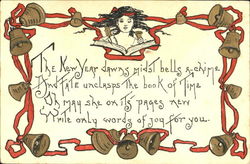 The New Year dawns midst bells a-chime
And Fate unclasps the book of Time
Oh may she on its pages new
Write only words of joy for you.